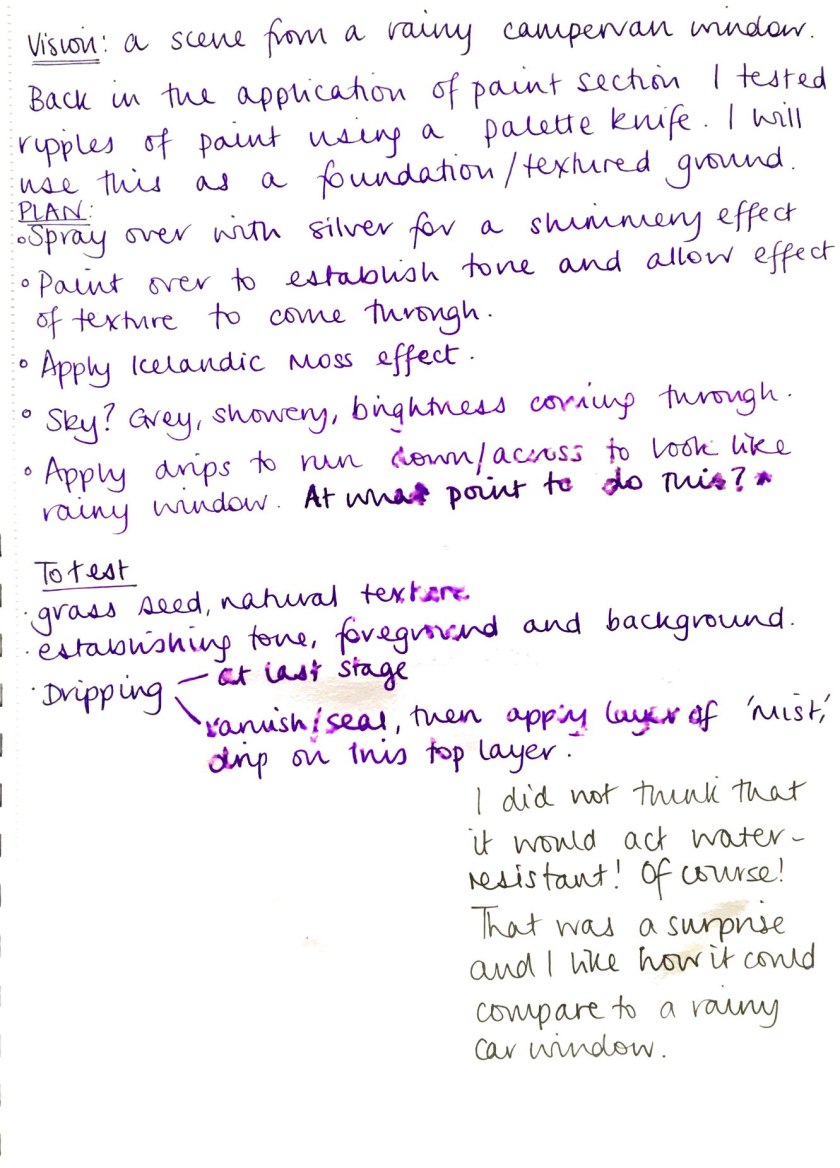 Vision: a scene from a rainy campervan window.
Back in the application of paint section I tested
ripples of paint using a palette knife. I will
use this as a foundation/textured ground.
PLAN:
∘Spray over with silver for a shimmery effect
∘Paint over to establish tone and allow effect
of texture to come through.
∘Apply Icelandic Moss effect.
∘Sky? Grey, showery, brightness coming through.
∘Apply drips to run down/across to look like
rainy window. At what point to do this?*
To test
·grass seed, natural texture
·establishing tone, foreground and background.
·Dripping – at last stage
varnish/seal, then apply layer of 'mist',
drip on this top layer.
I did not think that
it would act water-
resistant! Of course!
That was a surprise
and I like how it could
compare to a rainy
car window.